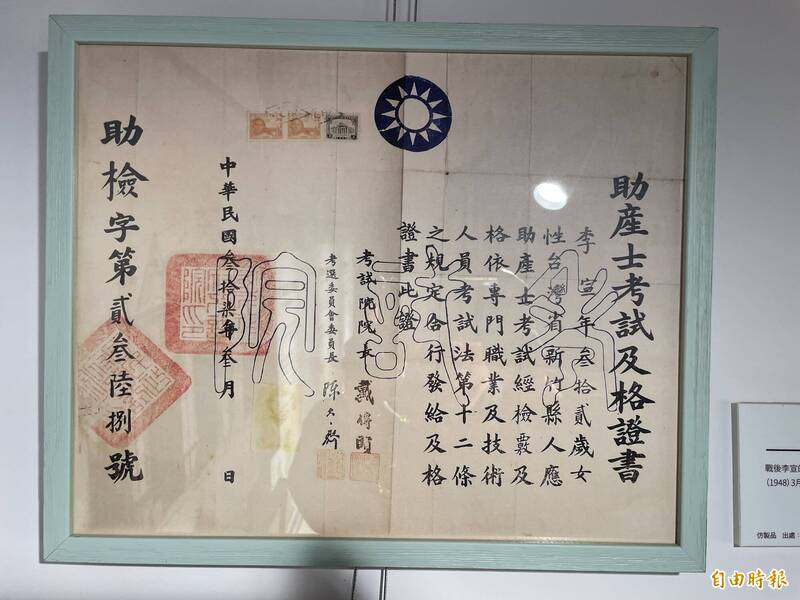 助產士考試及格證書
李宣年叁拾貳歲女
性台灣省新竹縣人應
助產士考試經檢覈及
格依專門職業及技術
人員考試法第十二條
之規定合行發給及格
證書此證
考試院院長 戴傳賢
考選委員會委員長 陳大齊
中華民國叁拾柒年叁月 日
助檢字第貳叁陸捌號
考試院
戰後李宣
(1948) 3月
仿製品 出處:
自由時報